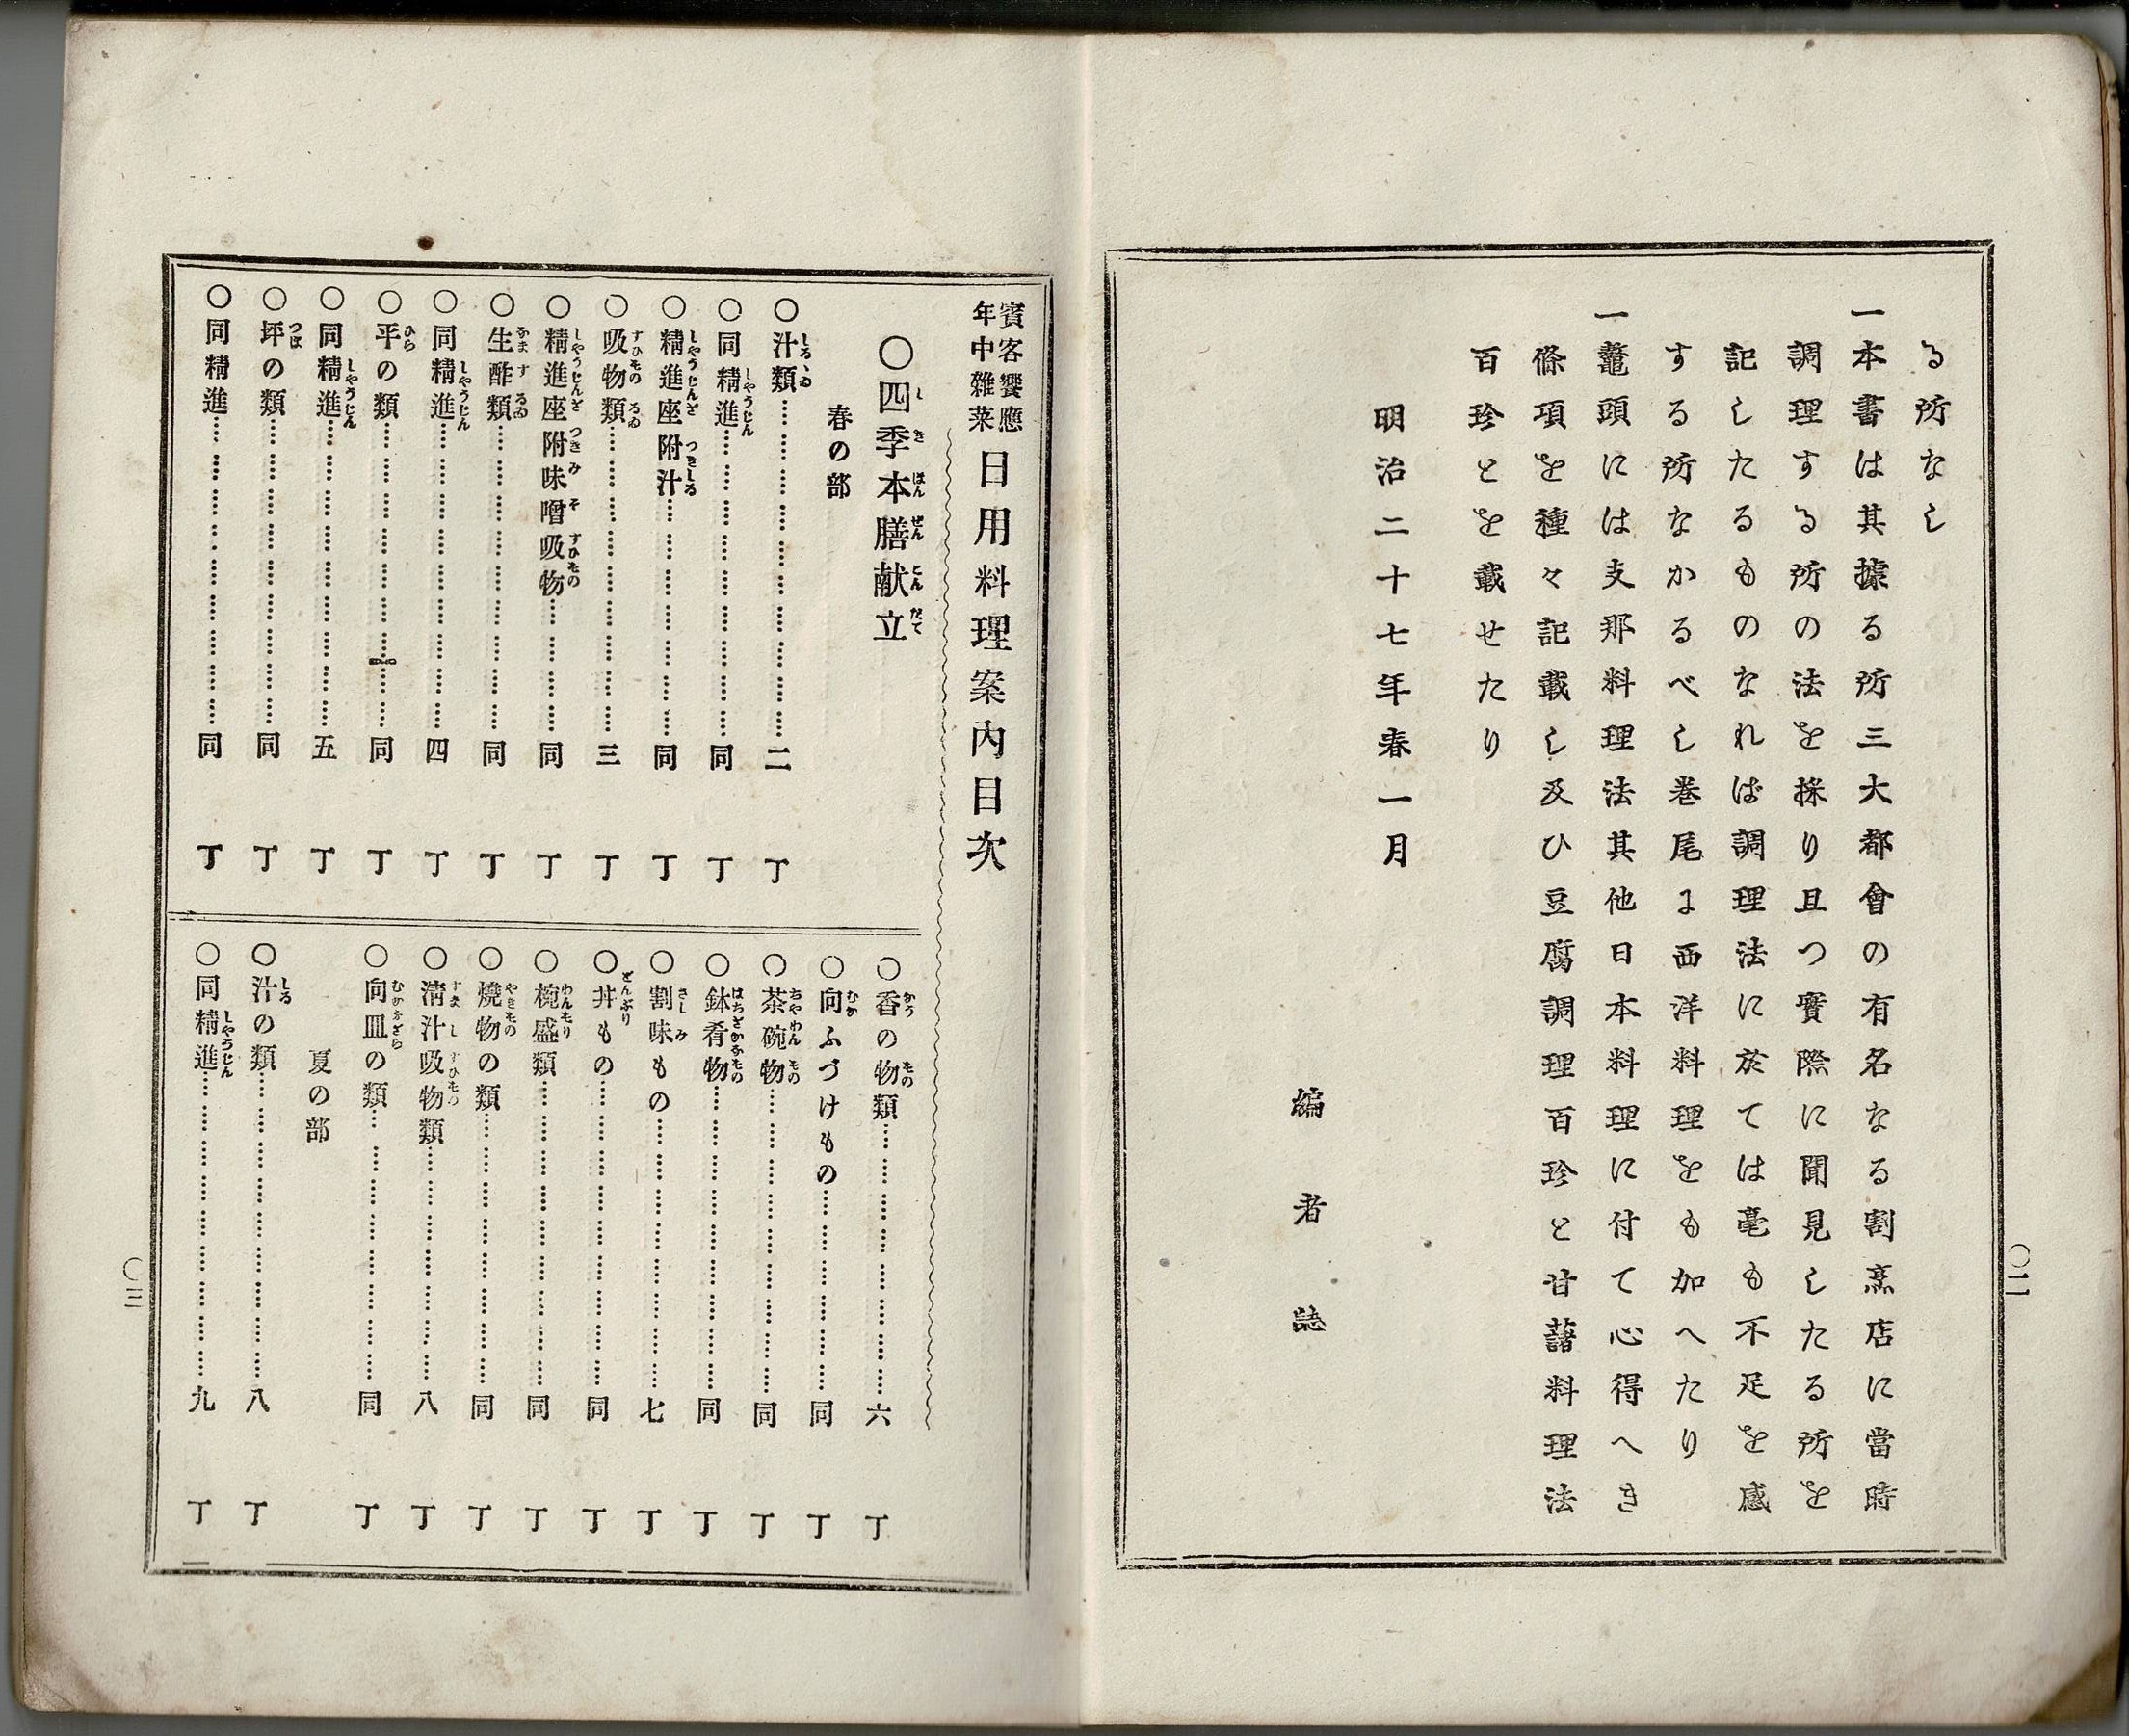 る所なし
一本書は其據る所三大都會の有名なる割烹店に當時
調理する所の法を採り且つ實際に聞見したる所を
記したるものなれば調理法に於ては毫も不足を感
する所なかるべし巻尾に西洋料理をも加へたり
一鼇頭には支那料理法其他日本料理に付て心得へき
條項を種々記載し及ひ豆腐調理百珍と甘藷料理法
百珍とを載せたり
明治二十七年春一月
編者誌
〇二
賓客饗應
年中雜菜
日用料理案内目次
〇四季本膳献立
春の部
〇汁類…………二丁
〇同精進…………同丁
〇精進座附汁…………同丁
〇吸物類…………三丁
〇精進座附味噌吸物…………同丁
〇生酢類…………同丁
〇同精進…………四丁
〇平の類…………同丁
〇同精進…………五丁
〇坪の類…………同丁
〇同精進…………同丁
〇香の物類…………六丁
〇向ふづけもの…………同丁
〇茶碗物…………同丁
〇鉢肴物…………同丁
〇割味もの…………七丁
〇丼もの…………同丁
〇椀盛類…………同丁
〇燒物の類…………同丁
〇淸汁吸物類…………八丁
〇向皿の類…………同丁
夏の部
〇汁の類…………八丁
〇同精進…………九丁
〇三